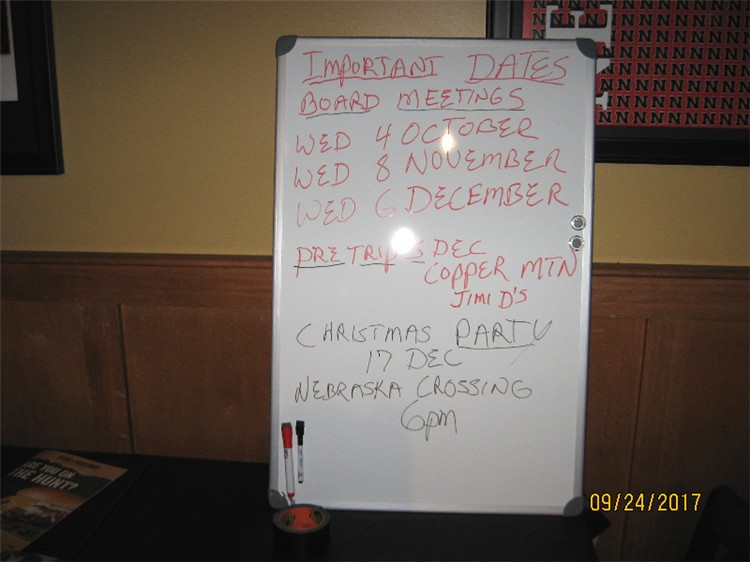 IMPORTANT DATES
BOARD MEETINGS
WED 4 OCTOBER
WED 8 NOVEMBER
WED 6 DECEMBER
PRE TRIPS DEC
COPPER MTN
JIMI D'S
CHRISTMAS PARTY
17 DEC
NEBRASKA CROSSING
6pm
ARE YOU ON
THE HUNT?
09/24/2017